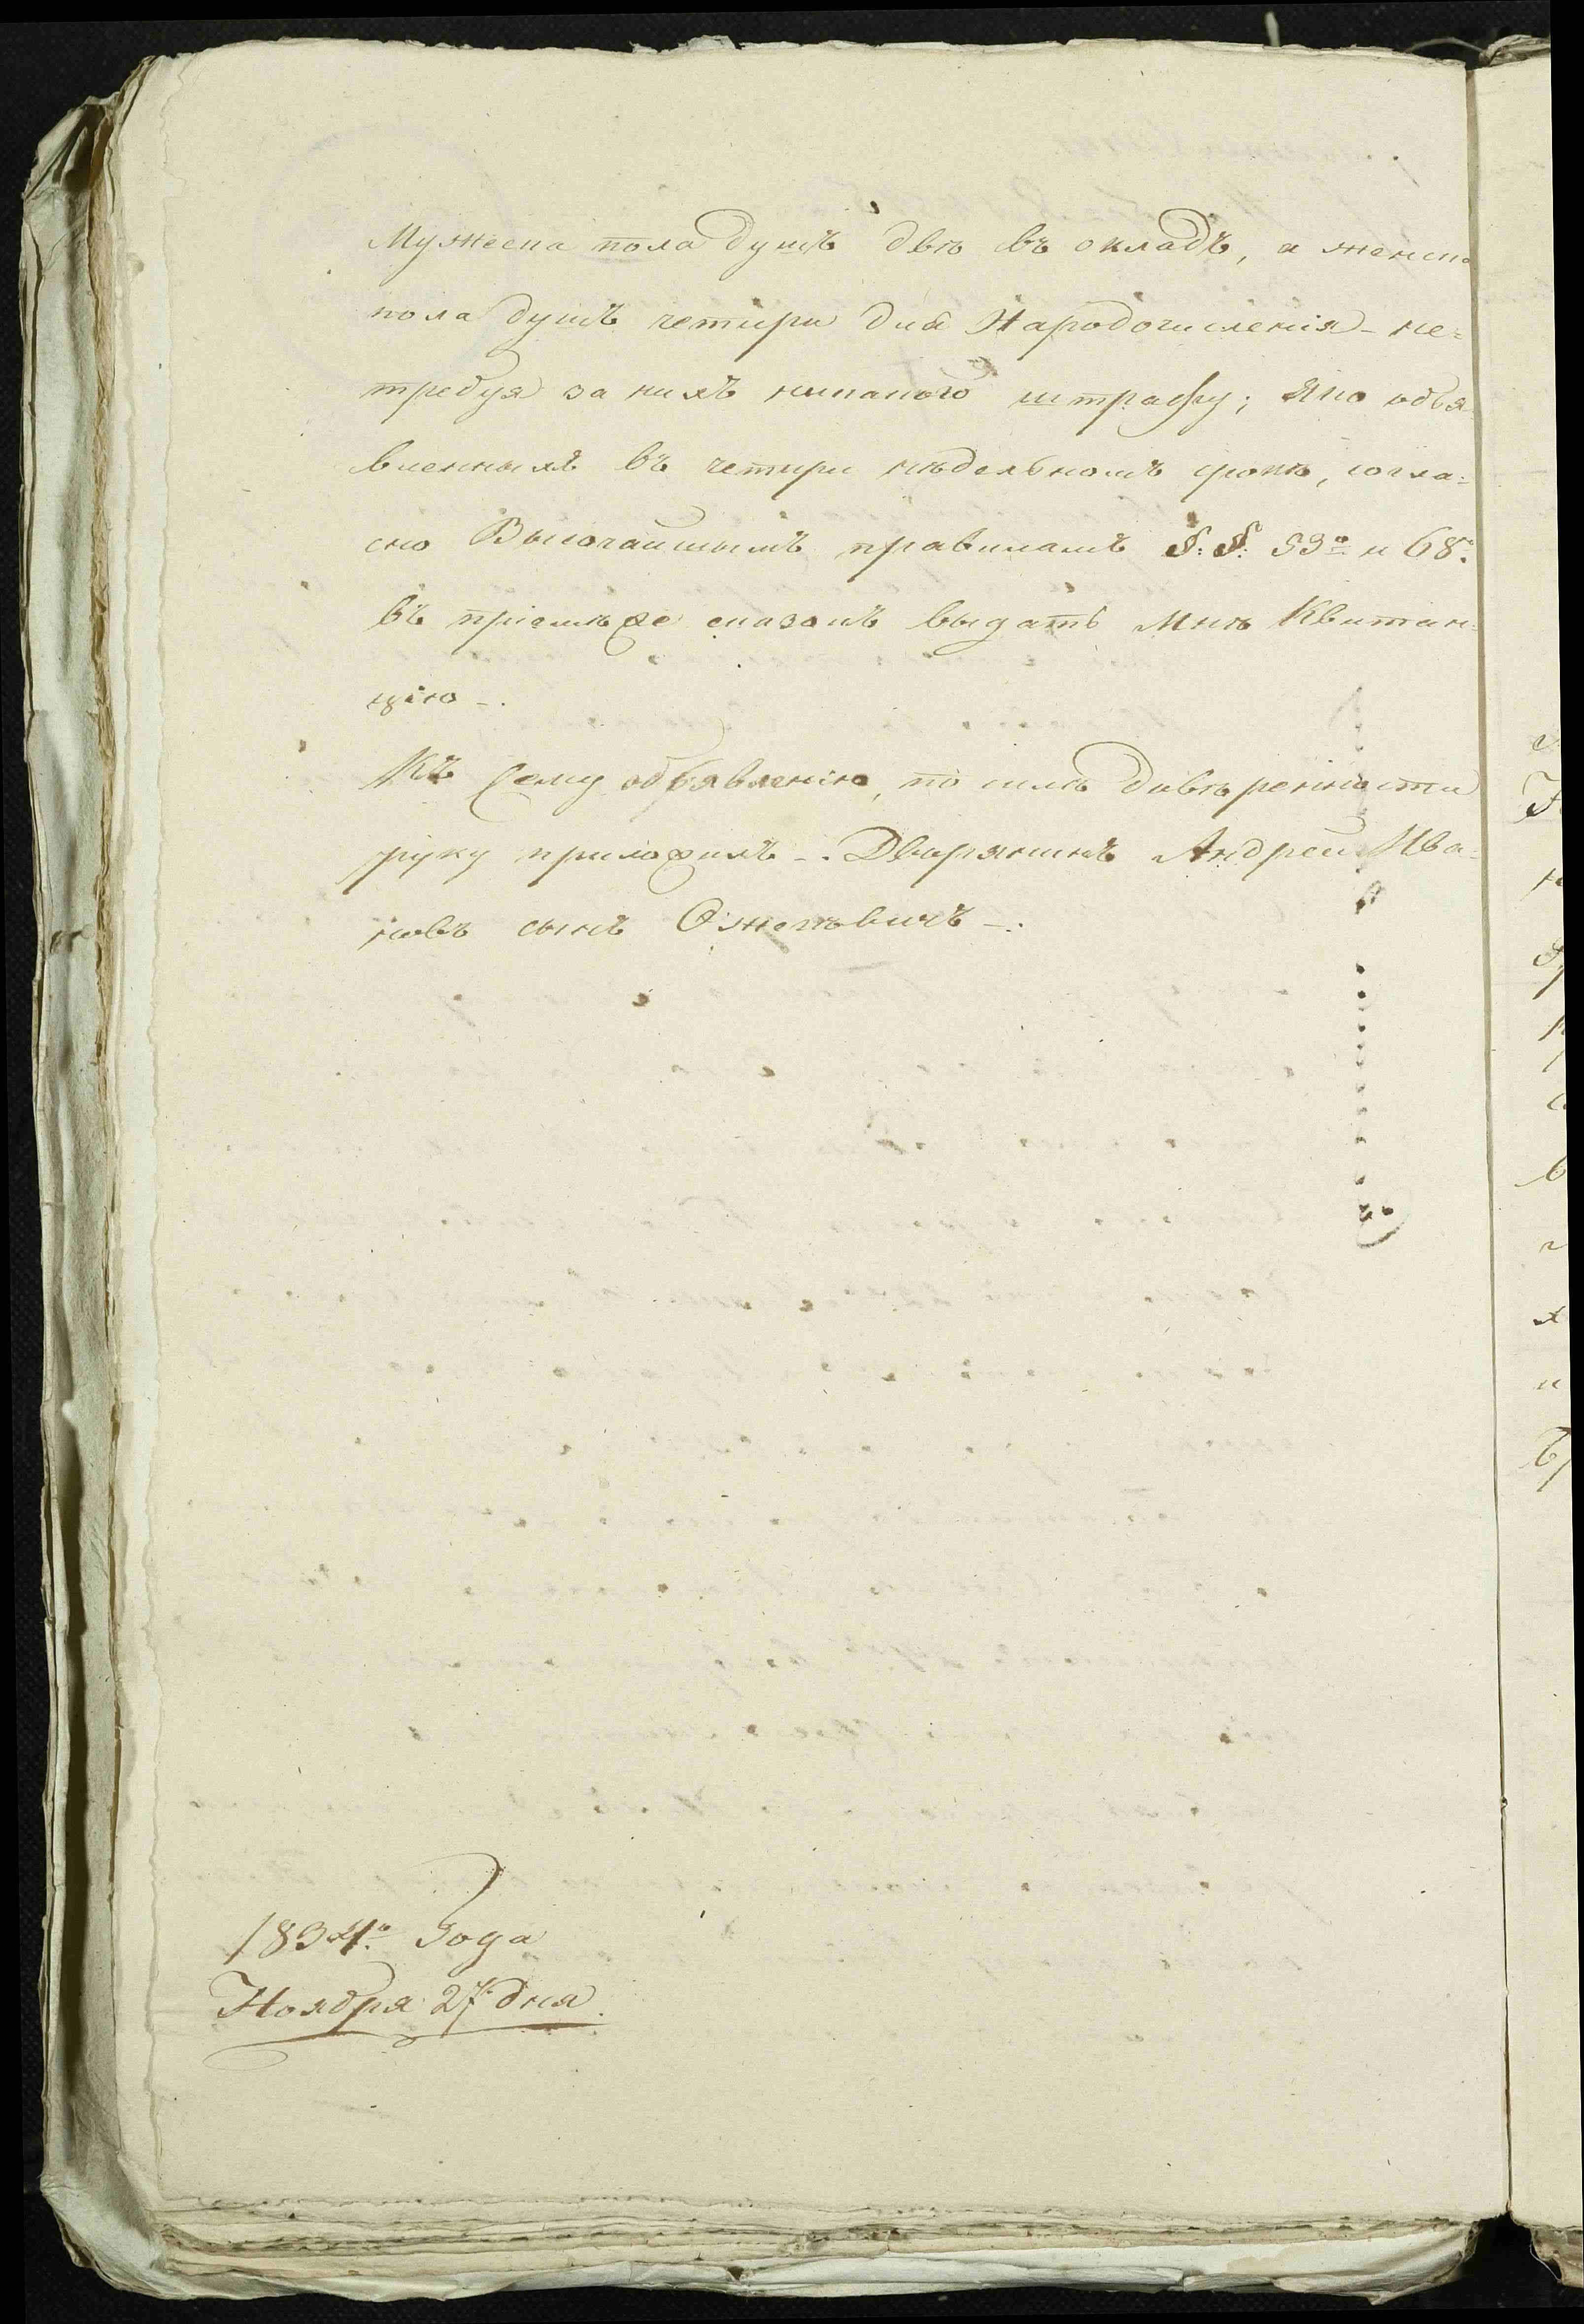 Мужеска пола душъ двѣ въ окладъ, а женска
пола душъ четири для Народочисленія – не=
требуя за нихъ никакого штрафу; яко объя
вленныхъ въ четири недѣльномъ срокѣ, согла=
сно Высочайшымъ правиламъ §: §: 53º и 68º:
въ пріемѣ же сказокъ выдать мнѣ Квитан=
цію –.
Къ Сему объявленію, по силѣ довѣренности
руку приложилъ –. Дворянинъ Андрей Ива=
новъ сынъ –.
1834º Года
Ноября 27º дня